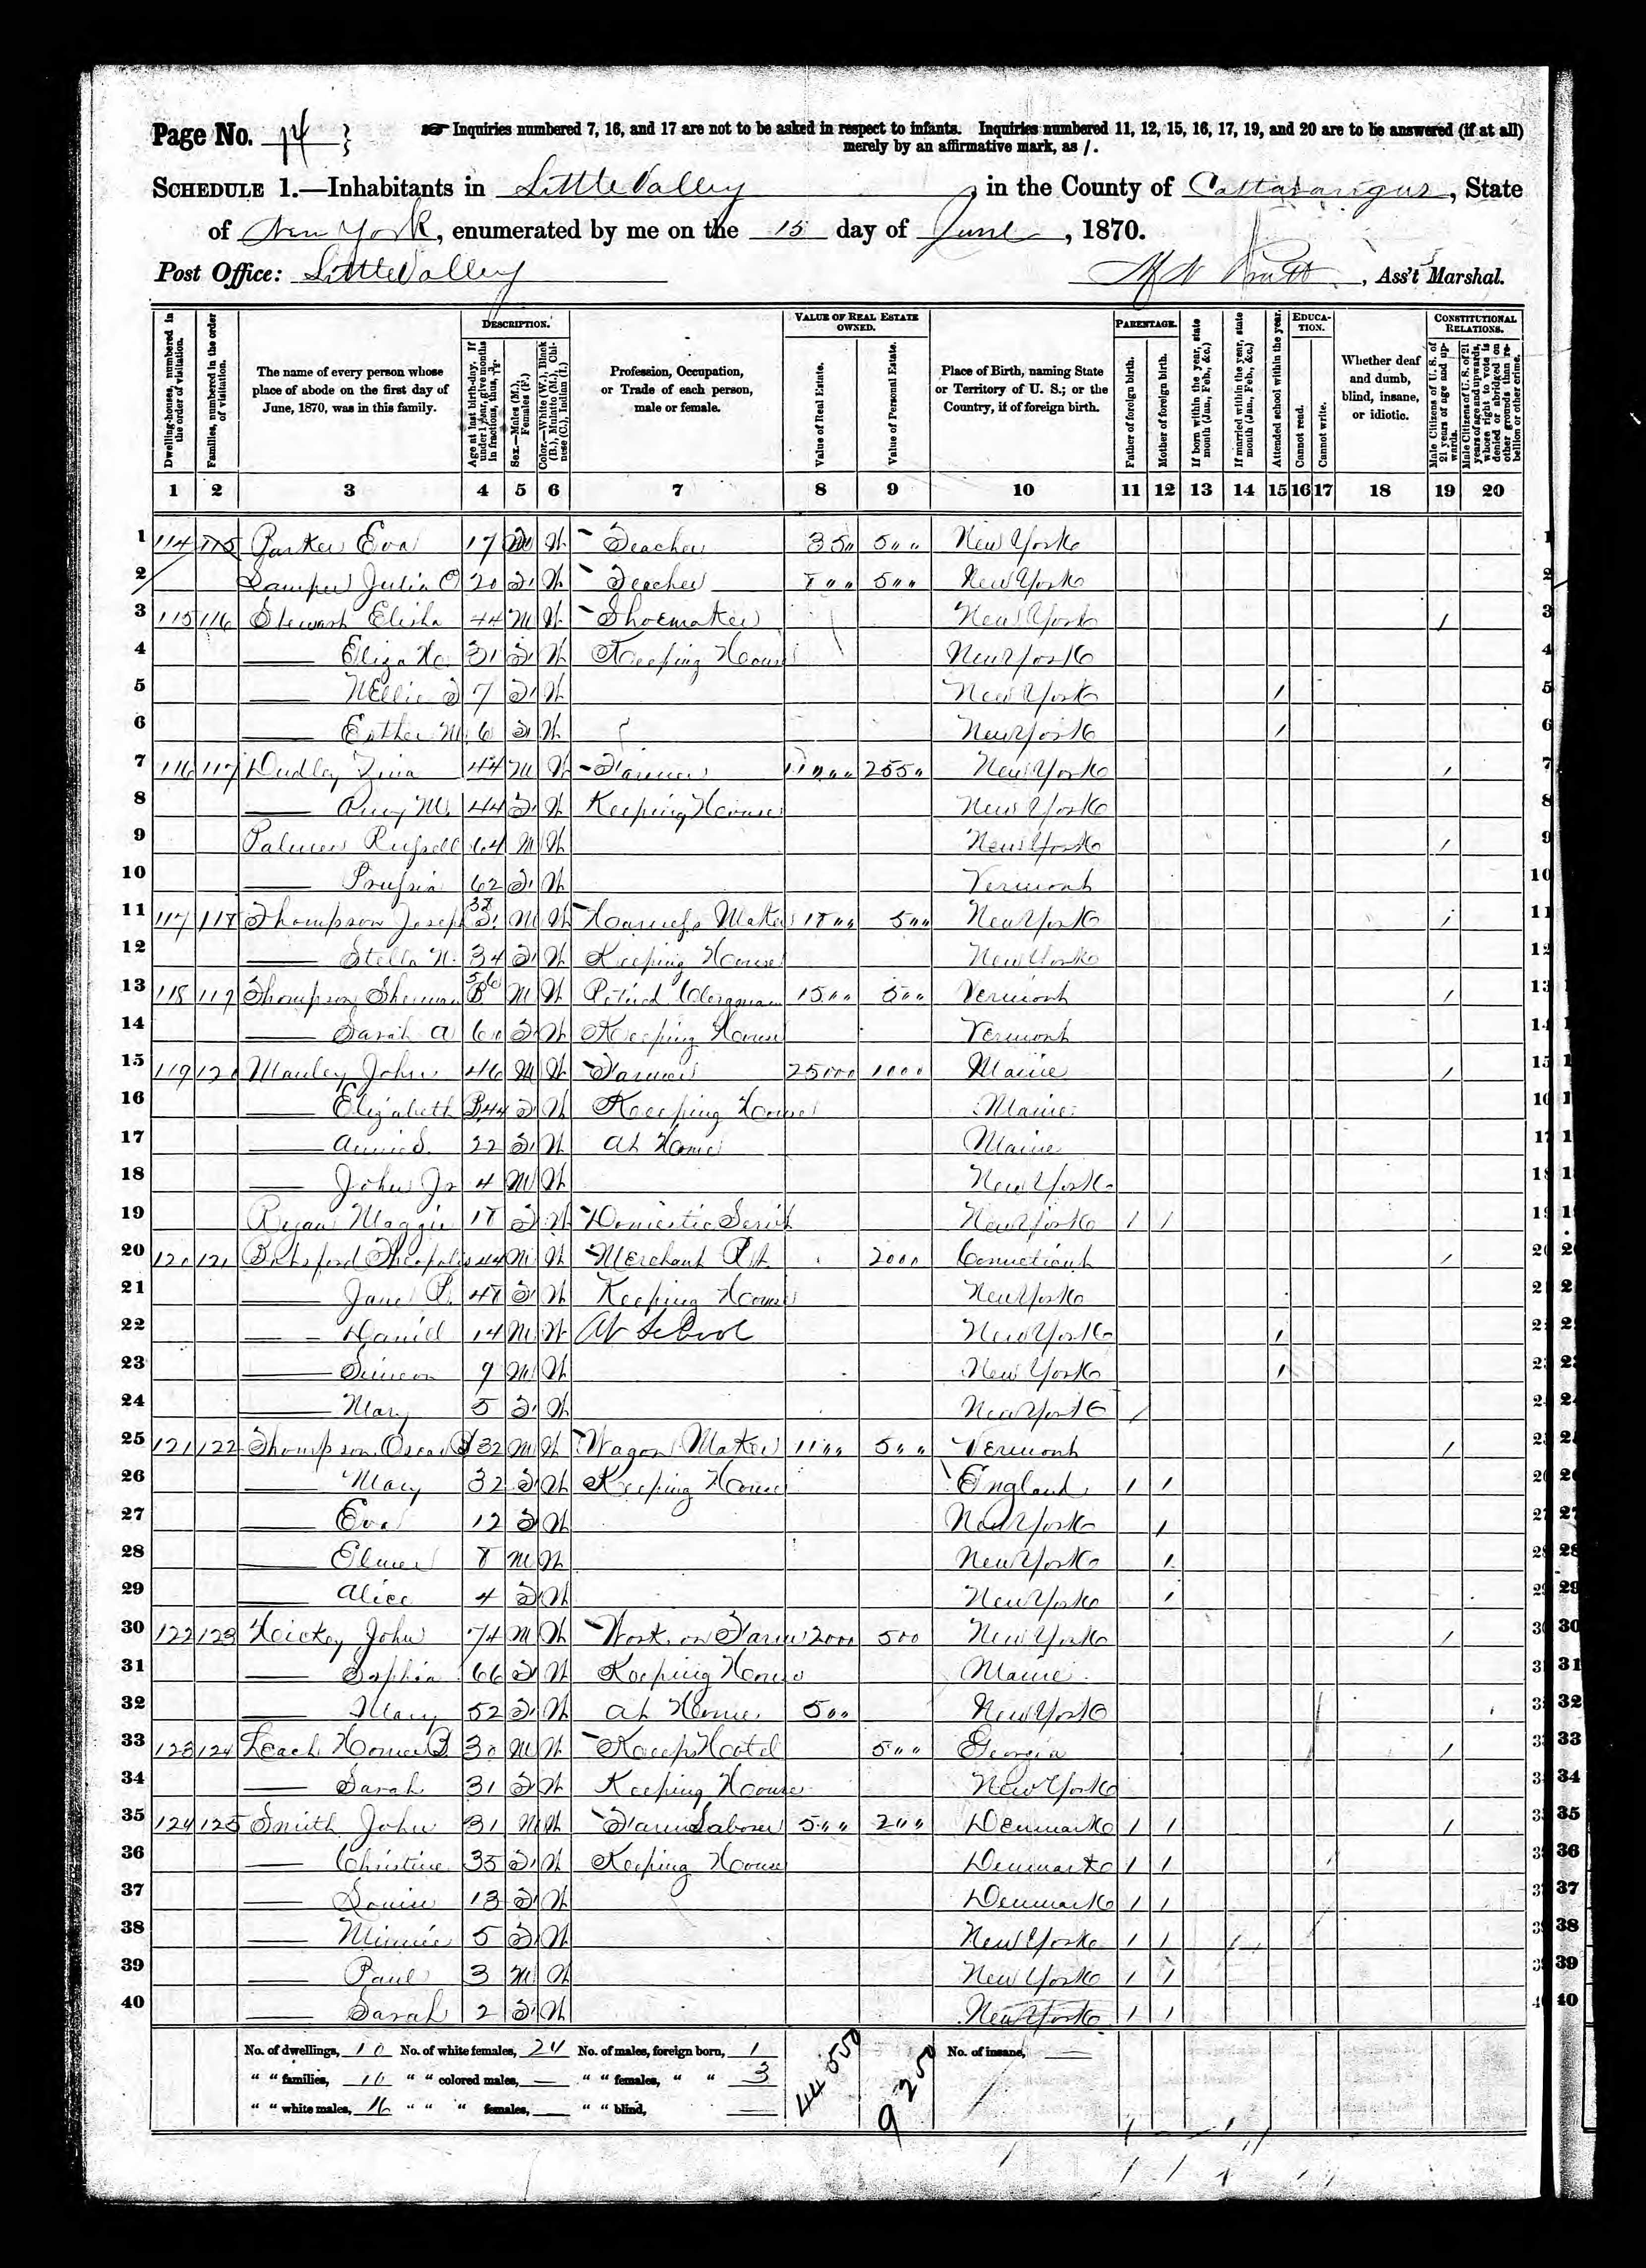 Page No. 14
Inquiries numbered 7, 16, and 17 are not to be asked in respect to infants. Inquiries numbered 11, 12, 15, 16, 17, 19, and 20 are to be answered (if at all)
merely by an affirmative mark, as /.
SCHEDULE 1.—Inhabitants in Little Valley, in the County of Cattaraugus, State
of New York, enumerated by me on the 15 day of June, 1870.
Post Office: Little Valley
Pratt, Ass't Marshal.
Dwelling-houses, numbered in the order of visitation.
Families, numbered in the order of visitation.
The name of every person whose place of abode on the first day of June, 1870, was in this family.
DESCRIPTION.
Age at last birth-day. If under 1 year, give months in fractions, thus, 3/12.
Sex.—Males (M.), Females (F.)
Color.—White (W.), Black (B.), Mulatto (M.), Chinese (C.), Indian (I.)
Profession, Occupation, or Trade of each person, male or female.
VALUE OF REAL ESTATE OWNED.
Value of Real Estate.
Value of Personal Estate.
Place of Birth, naming State or Territory of U. S.; or the Country, if of foreign birth.
PARENTAGE.
Father of foreign birth.
Mother of foreign birth.
If born within the year, state month (Jan., Feb., &c.)
If married within the year, state month (Jan., Feb., &c.)
Attended school within the year.
EDUCATION.
Cannot read.
Cannot write.
Whether deaf and dumb, blind, insane, or idiotic.
CONSTITUTIONAL RELATIONS.
Male Citizens of U. S. of 21 years of age and upwards.
Male Citizens of U. S. of 21 years of age and upwards, whose right to vote is denied or abridged on other grounds than rebellion or other crime.
1 2 3 4 5 6 7 8 9 10 11 12 13 14 15 16 17 18 19 20
1 114 115 Parker Eva 17 W Teacher 350 500 New York 1
2 Julia 20 F W Teacher 800 500 New York 2
3 115 116 Stewart Elisha 44 M W Shoemaker New York / 3
4 —— Eliza 31 F W Keeping House New York 4
5 —— Nellie 7 F W New York / 5
6 —— Esther M. 6 F W New York / 6
7 116 117 Dudley 44 M W Farmer 2550 New York / 7
8 —— Amy M. 44 F W Keeping House New York 8
9 Palmer Russell 64 M W New York / 9
10 —— 62 F W Vermont 10
11 117 118 Thompson Joseph 38 M W Harness Maker 1800 500 New York / 11
12 —— Stella 34 F W Keeping House New York 12
13 118 119 Thompson Sherman 56 M W Retired Clergyman 1500 500 Vermont / 13
14 —— Sarah A 60 F W Keeping House Vermont 14
15 119 120 Manley John 46 M W Farmer 25000 1000 Maine / 15
16 —— Elizabeth B 44 F W Keeping House Maine 16
17 —— Annie S. 22 F W At Home Maine 17
18 —— John Jr 4 M W New York 18
19 Ryan Maggie 18 F W Domestic Servt New York / / 19
20 120 121 Botsford 44 M W Merchant 2000 Connecticut / 20
21 —— Jane 48 F W Keeping House New York 21
22 —— Daniel 14 M W At School New York / 22
23 —— Simeon 9 M W New York / 23
24 —— Mary 5 F W New York / 24
25 121 122 Thompson Oscar 32 M W Wagon Maker 1100 500 Vermont / 25
26 —— Mary 32 F W Keeping House England / / 26
27 —— Eva 12 F W New York / 27
28 —— Elmer 8 M W New York / 28
29 —— Alice 4 F W New York / 29
30 122 123 Hickey John 74 M W Work on Farm 2000 500 New York / 30
31 —— Sophia 66 F W Keeping House Maine 31
32 —— Mary 52 F W At Home 500 New York / 32
33 123 124 Leach Homer B 30 M W Keeps Hotel 500 Georgia / 33
34 —— Sarah 31 F W Keeping House New York 34
35 124 125 Smith John 31 M W Farm Laborer 500 200 Denmark / / / 35
36 —— Christine 35 F W Keeping House Denmark / / / 36
37 —— Louise 13 F W Denmark / / 37
38 —— Minnie 5 F W New York / / 38
39 —— Paul 3 M W New York / / 39
40 —— Sarah 2 F W New York / / 40
No. of dwellings, 10 No. of white females, 24 No. of males, foreign born, 1 44 550 9 250 No. of insane, —
" " families, 10 " " colored males, — " " females, " " 3
" " white males, 16 " " " females, — " " blind, —